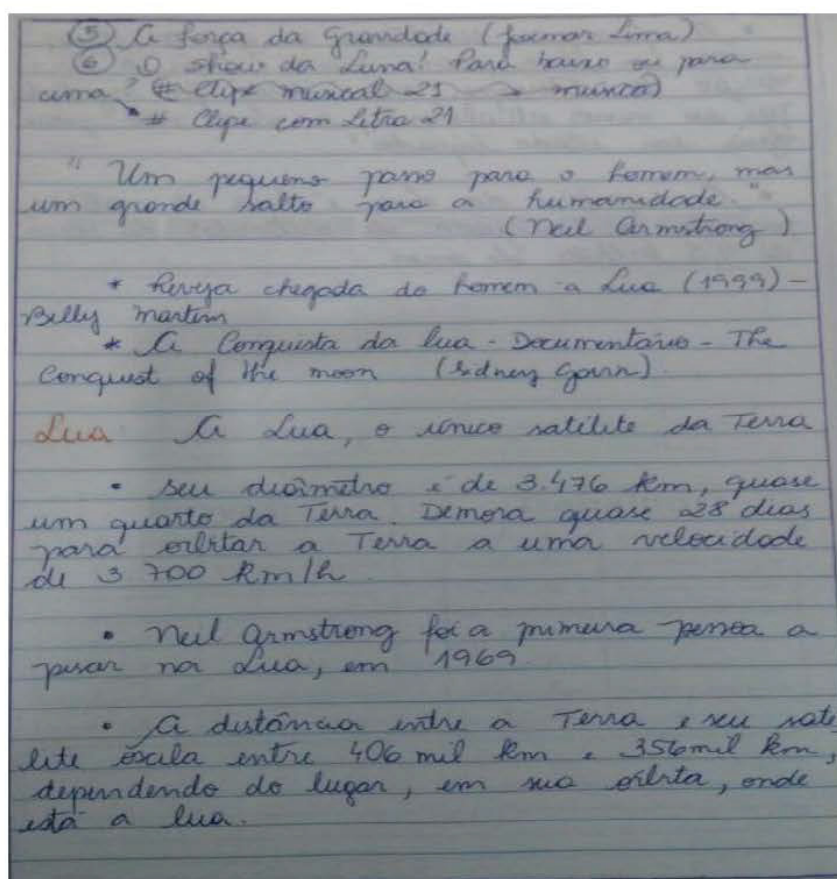 ⑤ A força da Gravidade (Joemar Lima)
⑥ O show da Luna! Para baixo ou para
cima? (# Clipe musical 21 → música)
# Clipe com Letra 21
" Um pequeno passo para o homem, mas
um grande salto para a humanidade."
(Neil Armstrong)
* Reveja chegada do homem a Lua (1999) -
Billy Martim
* A Conquista da lua - Documentário - The
Conquest of the moon (Sidney)
Lua A Lua, o único satélite da Terra
• Seu diâmetro é de 3.476 km, quase
um quarto da Terra. Demora quase 28 dias
para orbitar a Terra a uma velocidade
de 3 700 km/h.
• Neil Armstrong foi a primeira pessoa a
pisar na Lua, em 1969.
• A distância entre a Terra e seu saté
lite oscila entre 406 mil km e 356 mil km,
dependendo do lugar, em sua órbita, onde
está a lua.